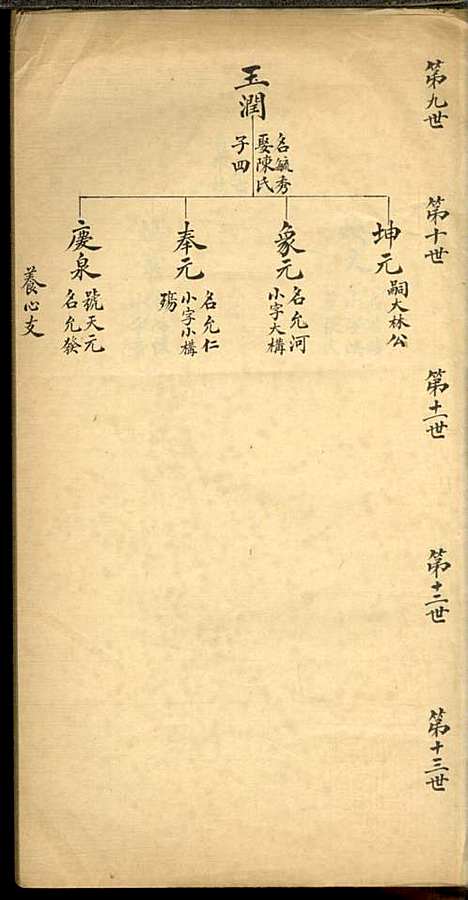 第九世
第十世
第十一世
第十二世
第十三世
玉潤
名毓秀
娶陳氏
子四
坤元
嗣大林公
象元
名允河
小字大構
奉元
名允仁
小字小構
殤
慶泉
號天元
名允發
養心支